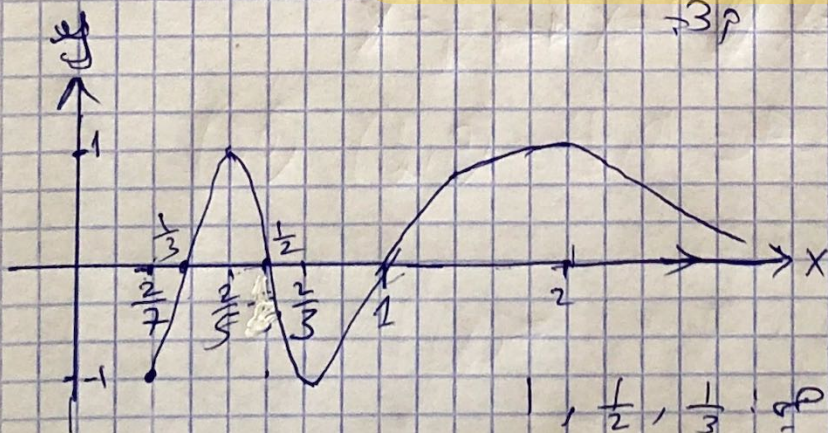 y
1
1/3 1/2
x
2/7 2/5 2/3 1 2
-1
1, 1/2, 1/3 :